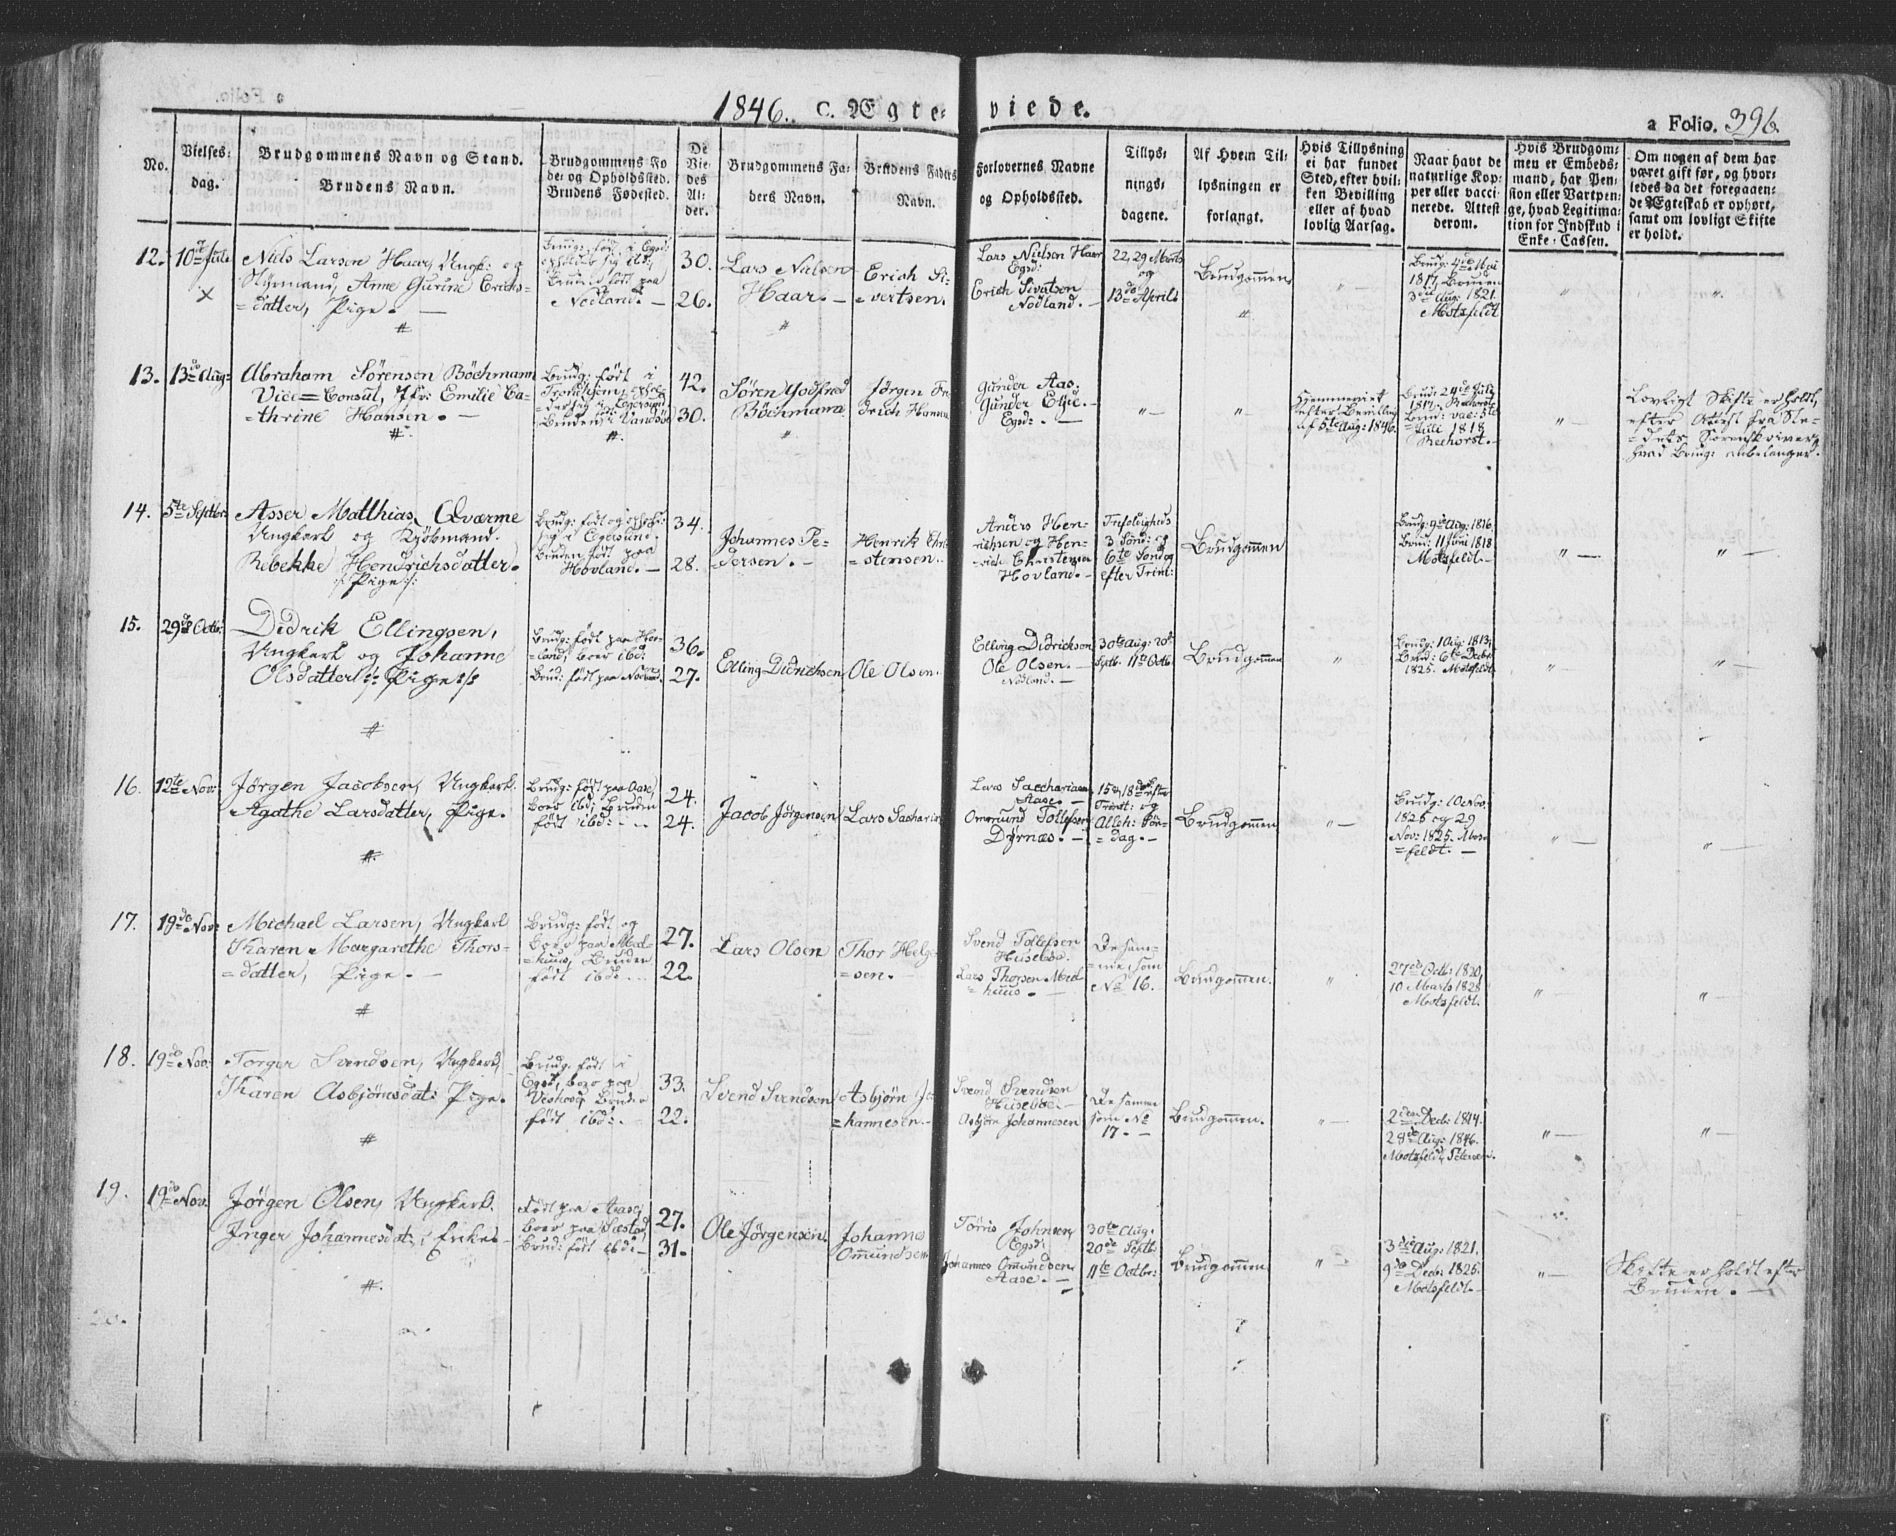 1846. C. Ægteviede.
a Folio. 396.
No.
Vielsesdag.
Brudgommens Navn og Stand.
Brudens Navn.
Brudgommens Fødeog Opholdssted.
Brudens Fødested.
De Viedes Alder.
Brudgommens Faders Navn.
Brudens Faders Navn.
Forlovernes Navne og Opholdssted.
Tillysningsdagene.
Af Hvem Tillysningen er forlangt.
Hvis Tillysning ei har fundet Sted, efter hvilken Bevilling eller af hvad lovlig Aarsag.
Naar havt de naturlige Kopper eller vaccinerede. Attest derom.
Hvis Brudgommen er Embedsmand, har Pension eller Vartpenge, hvad Legitimation for Indskud i Enke-Cassen.
Om nogen af dem har været gift før, og hvorledes da det foregaaende Ægteskab er ophørt, samt om lovligt Skifte er holdt.
12.
Niels Larsen Haar, Ungk: og
Styrmand, Anne Gurine Erichs-
=datter, Pige. —
Nodland. —
30.
26.
Lars Nielsen
Haar. —
Erich Si-
=vertsen.
Lars Nielsen Haar
Egsd:
Erich Sivertsen
Nodland. —
22, 29 Marts
og
13de April
Brudgommen
Brudg: 4de Mai
1817, Bruden
3die Aug: 1821.
Motzfeldt
13.
13de Aug:
Abraham Sørensen Böchmann
Vice=Consul, Jfr: Emilie Ca-
=thrine Hansen. —
Brudg: født i
42.
30.
Søren Godfred
Böchmann
Jørgen Fre
drich Hansen
Gunder Aas.
Gunder Eie.
Egsd: —
Hjemmeviet
efter Bevilling
af 5te Aug: 1846.
Brud: vac: 5te
Juli 1818
Rechorst. —
Lovligt Skifte er holdt,
efter Attest fra Ste-
=dets Sorenskriver,
hvad Brudg: anbelanger.
14.
5te Septbr:
Asser Matthias Qværme
Ungkarl og Kjøbmand.
Rebekke Hendrichsdatter.
/: Pige :/
sig i Egersund.
Bruden født paa
Hovland. —
34.
28.
Johannes Pe-
=dersen. —
Henrik Chri
=stensen. —
Anders Hen-
richsen og Hen-
=rich Christensen
Hovland. —
Trefoldigheds
3 Sønd: og
6te Sønd og
efter Trint:
Brudgommen
Brudg: 9de Aug: 1816.
Brud: 11 Juni 1818
Motzfeldt. —
15.
29de Octbr:
Didrik Ellingsen,
Ungkarl og Johanne
Olsdatter /: Pige :/
Brudg: født paa Hov-
=land, boer ibd:
Brud: født paa Nodland
36.
27.
Elling Didrichsen
Ole Olsen.
Elling Didricksen
Ole Olsen. —
Nodland. —
30te Aug: 20de
Septb. 11te Octb:
Brudgommen
Brudg: 1 Aug: 1813,
Brud: 6te Decbr
1825. Motzfeldt.
16.
12te Nov:
Jørgen Jacobsen, Ungkarl.
Agathe Larsdatter, Pige.
Brudg: født paa Aase,
boer ibd: Bruden
født ibd: —
24.
24.
Jacob Jørgensen
Lars Sacharia
Lars Saccharias
Aase. —
Ommund Tollefsen
Dyrnæs. —
Trint: og
=dag. —
Brudgommen
Brudg: 10 Nov:
1825 og 29
Nov: 1825. Motz
=feldt. —
17.
19de Nov:
Michael Larsen, Ungkarl
Karen Margarethe Thors-
=datter, Pige. —
Brudg: født og
boer paa Mel-
=huus, Bruden
født ibd: —
27.
22.
Lars Olsen
Thor Helge
=sen. —
Svend Tollefsen
Husebø.
Lars Thorsen Mel
=huus. —
De sam-
=me, som
No 16. —
Brudgommen.
27de Octb: 1820,
10 Marts 1825
Motzfeldt. —
18.
19de Nov:
Torger Svendsen, Ungkarl,
Karen Asbjørnsdat: Pige.
Brudg. født i
Egsd, boer paa
født ibd: —
33.
22.
Svend Svendsen
Asbjørn Jo
=hannesen. —
Svend Svendsen
Husebøe. —
Asbjørn Johannesen
De samme
som No
17. —
Brudgommen.
2den Decb: 1814.
28de Aug: 1846.
Motzfeldt, Petersen.
19.
19de Nov:
Jørgen Olsen, Ungkarl.
Inger Johannesdat: Enke. —
Født paa Aase,
boer paa Sæstad,
Brud: født ibd: —
27.
31.
Ole Jørgensen
Johannes
Ommundsen
Tørris Johnsen
Egsd:
Johannes Ommundsen
Aase. —
30te Aug.
20de Septb:
11te Octbr:
Brudgommen
3die Aug: 1821.
9de Decb: 1825.
Motzfeldt. —
Skifte er holdt efter
Bruden. —
20.